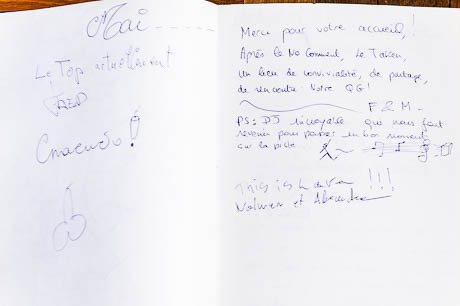 Mai
Le Top actuellement
FRED
Спасибо!
Merci pour votre accueil,!
Après le No Comment, Le Taken,
un lieu de convivialité, de partage,
de rencontre. Notre QG!
F & M -
PS: DJ incroyable que nous fait
revenir pour passer un bon moment
sur la piste.
This is !!!
et